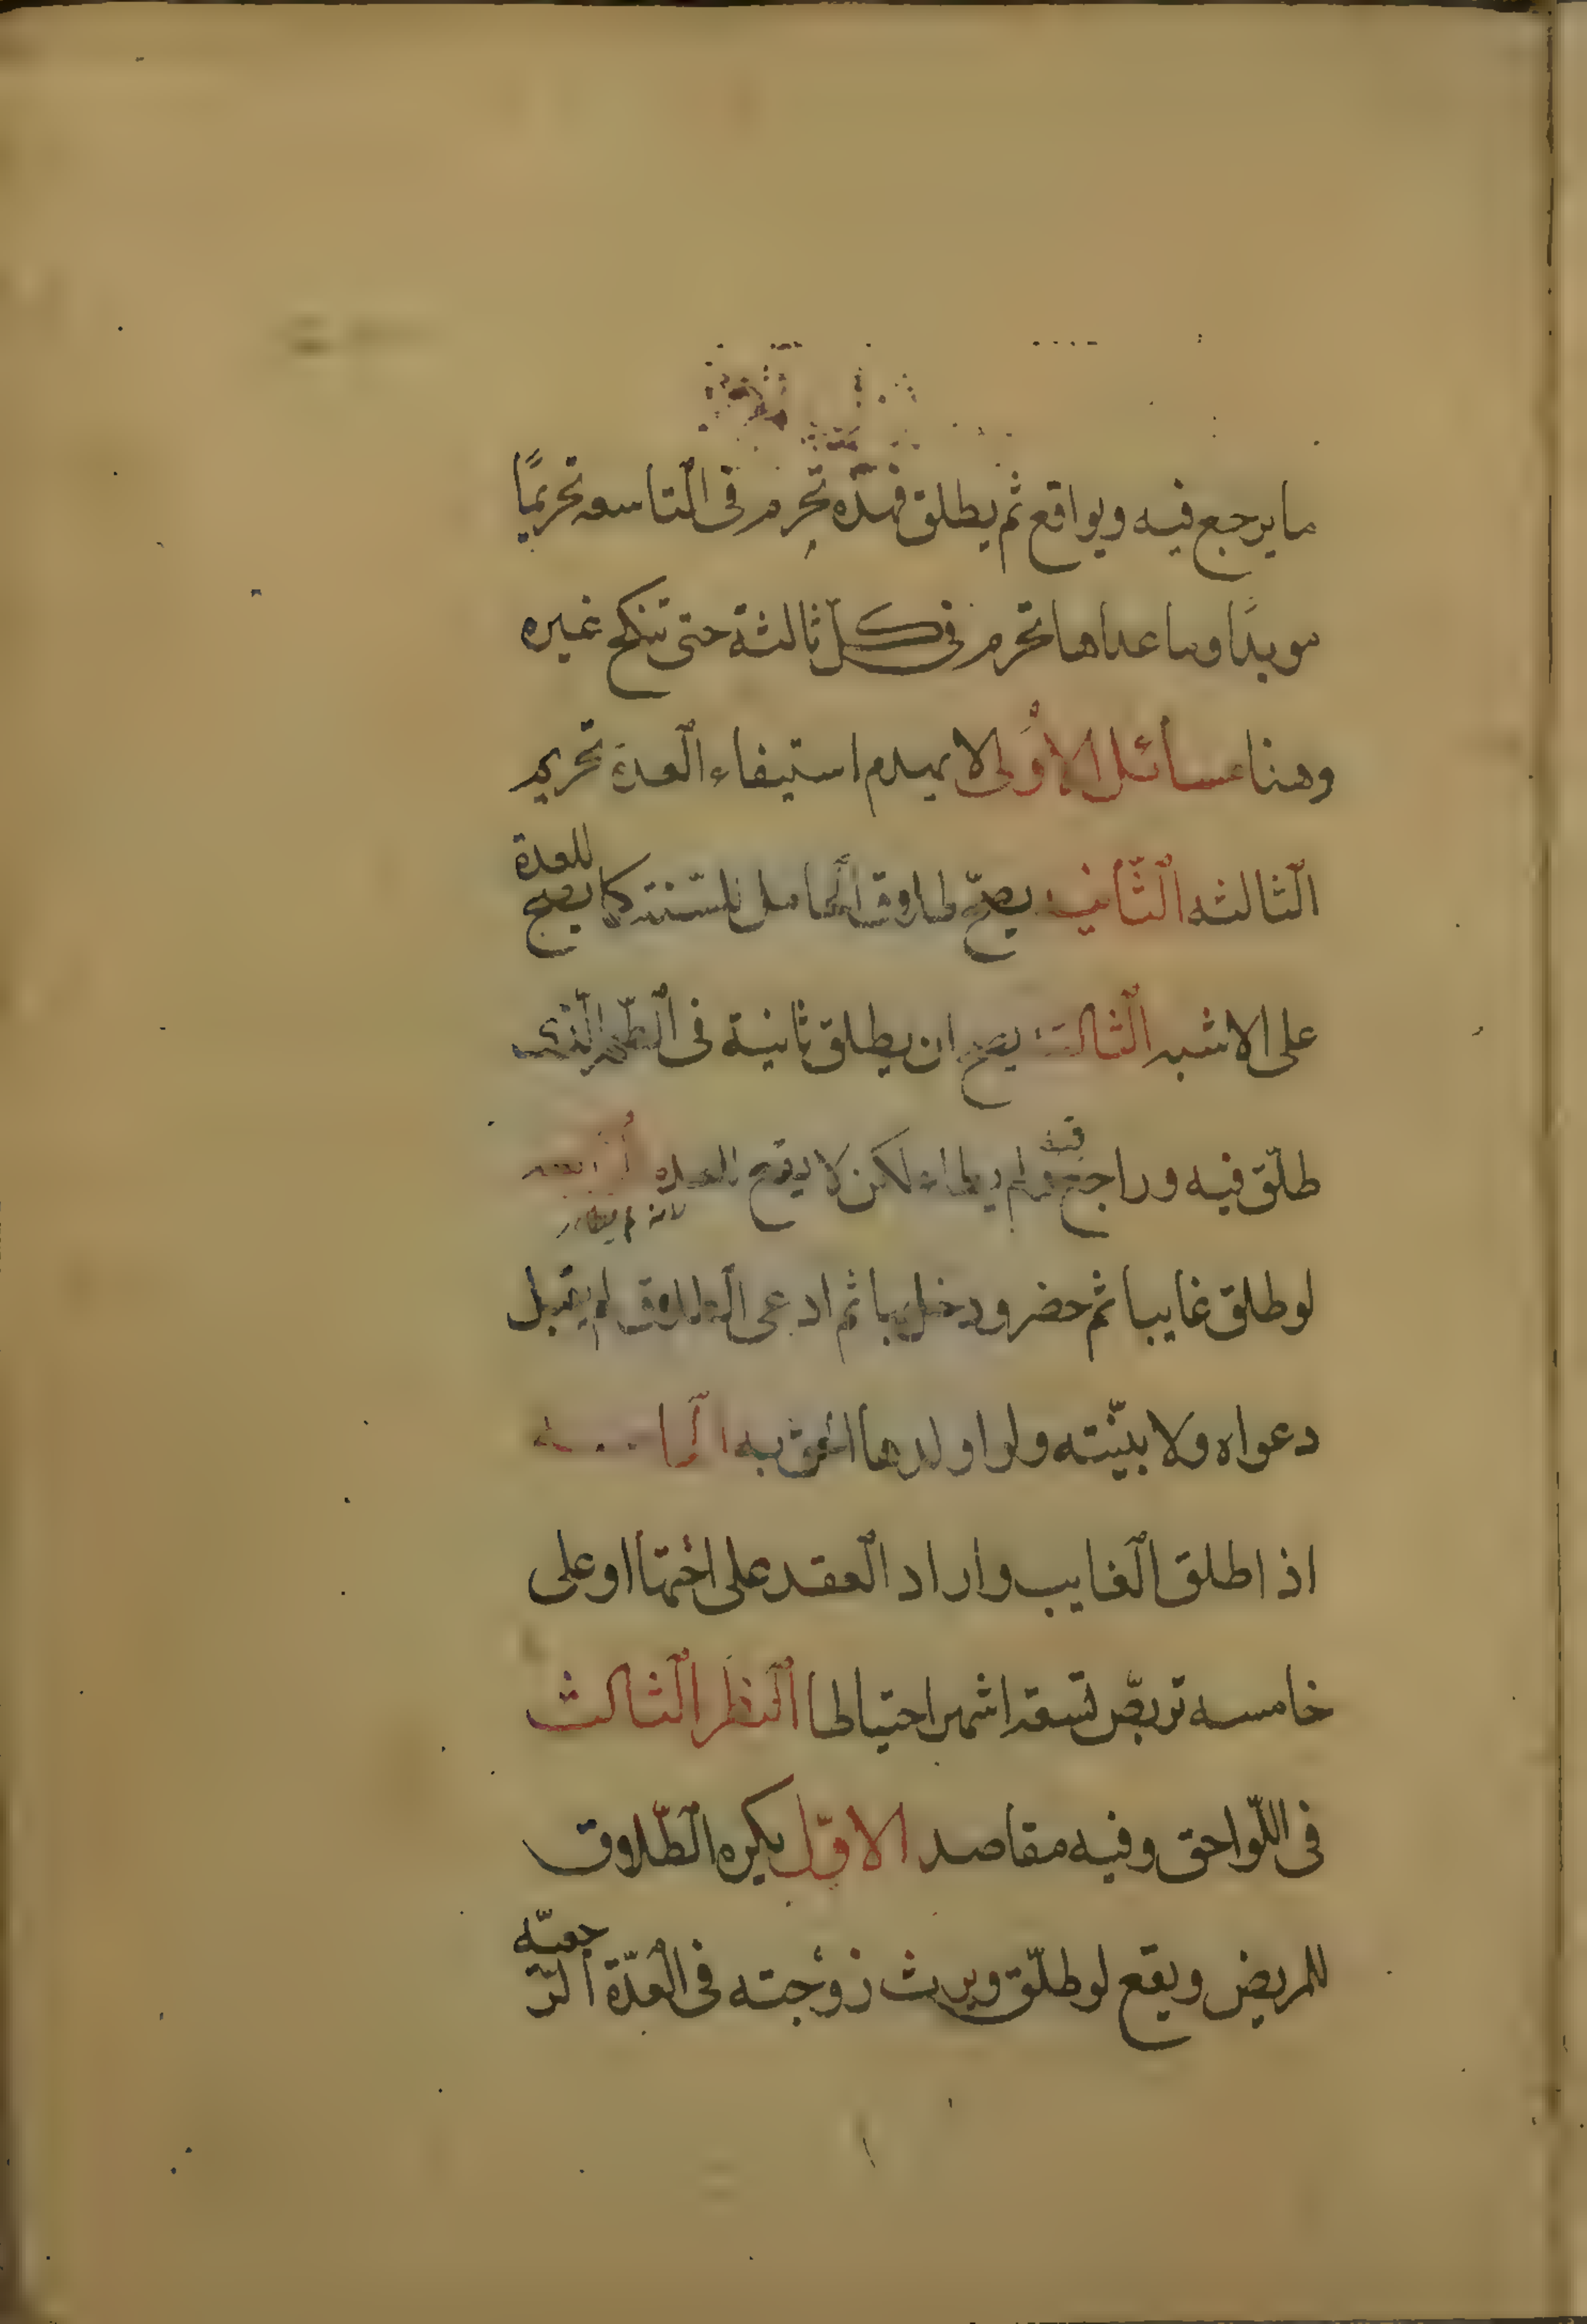 ما يرجع فيه ويواقع ثم يطلق فهذه تحرم في التاسعه تحريمًا
موبدًا وما عداها تحرم في كل ثالثة حتى تنكح غيره
وهنا مسائل الاولى لا يهدم استيفاء العدة تحريم
الثالثه الثانية يصح طلاق الحامل للسنته كما يصح للعدة
على الاشبه الثالثة يصح ان يطلق ثانية في الطهر الذي
طلّق فيه وراجع فيه ولم يطاء لكن لا يقع للعده
لو طلق غايبا ثم حضر ودخل بها ثم ادعى الطلاق لم يقبل
دعواه ولا بيّنته ولو اولدها لحق به الخامسة
اذا طلق الغايب واراد العقد على اختها او على
خامسه تربص تسعة اشهر احتياطا النظر الثالث
في اللّواحق وفيه مقاصد الاوّل يكره الطّلاق
للمريض ويقع لو طلّق ويرث زوجته في العدّة الرّجعيّه